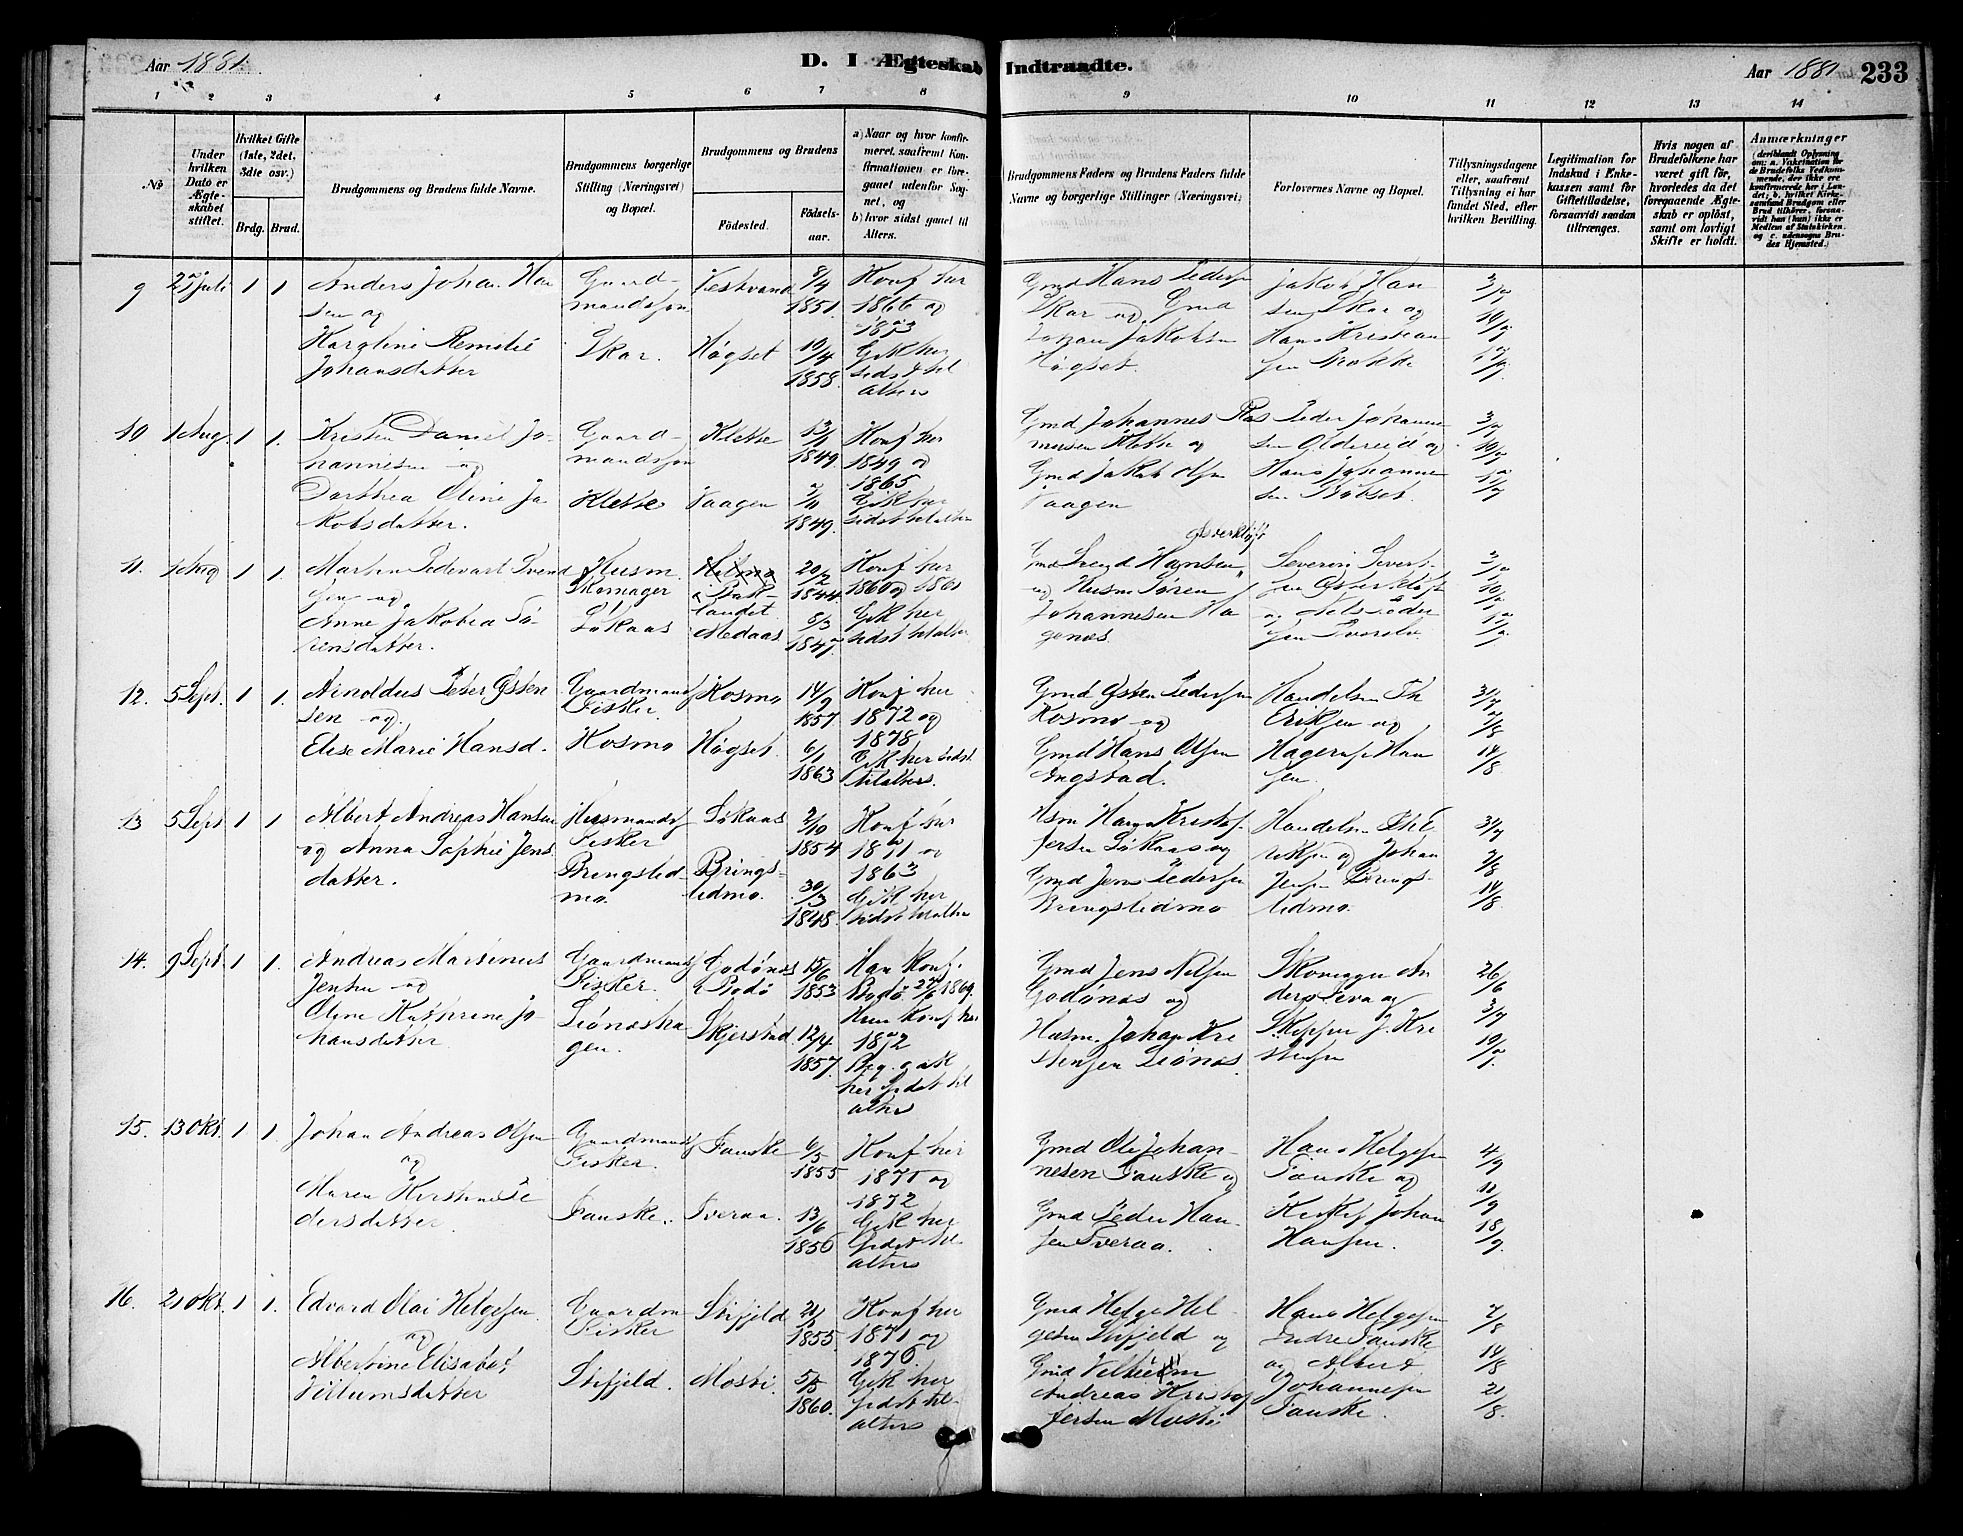 Aar 1881.
D. I Ægteskab Indtraadte.
Aar 1881
233
1 2 3 4 5 6 7 8 9 10 11 12 13 14
№
Under hvilken Dato er Ægteskabet stiftet.
Hvilket Gifte (1ste, 2det, 3die osv.)
Brdg. Brud.
Brudgommens og Brudens fulde Navne.
Brudgommens borgerlige Stilling (Næringsvei) og Bopæl.
Brudgommens og Brudens
Födested.
Födselsaar.
a) Naar og hvor konfirmeret, saafremt Konfirmationen er foregaaet udenfor Sognet, og
b) hvor sidst gaaet til Alters.
Brudgommens Faders og Brudens Faders fulde Navne og borgerlige Stillinger (Næringsvei).
Forlovernes Navne og Bopæl.
Tillysningsdagene eller, saafremt Tillysning ei har fundet Sted, efter hvilken Bevilling.
Legitimation for Indskud i Enkekassen samt for Giftetilladelse, forsaavidt saadan tiltrænges.
Hvis nogen af Brudefolkene har været gift før, hvorledes da det foregaaende Ægteskab er opløst, samt om lovligt Skifte er holdt.
Anmærkninger
(deriblandt Oplysning om: a. Vakcination for de Brudefolks Vedkommende, der ikke ere konfirmerede her i Landet; b. hvilket Kirkesamfund Brudgom eller Brud tilhører, forsaavidt han (hun) ikke er Medlem af Statskirken, og c. udensogns Brudes Hjemsted.)
9 25 juli 1 1 Anders Johan Hansen og
Karoline Remelie Johansdatter
Gaardmandssøn Skar.
Vestvand
Høgset
8/4 1851.
19/4 1858.
Konf her 1866 og 1873
Gik her sidst til alters
Gmd Hans Pedersen Skar og Gmd Johan Jakobsen Høgset.
Jakob Hansen Skar og Hans Kristiansen
3/7 10/7 17/7
10 1 Aug. 1 1. Kristen Daniel Johannesen og
Dorthea Oline Jakobsdatter.
Gaardmandssøn Klette
Klette
Vaagen
1849.
1849.
Konf her 1849 og 1865
Gik her sidst til alters
Gmd Johannes Rasmusen Klette og
Gmd Jakob Olsen Vaagen
Peder Johannesen Oldereid og
Hans Johannesen
3/7 10/7 17/7
11. 1 Aug 1 1. Martin Edevart Svendsen og
Anne Jakobea Sørensdatter.
Husm. Skomager Løkaas
Medaas
20/2 1844.
8/3 1847.
Konf her 1860 og 1861
Gik her sidst til alters
Østerkløft
Gmd Svend Hansen
og Husm Søren Johannesen Hagenæs
Severin Sivertsen Østerkløft og Nels Pedersen Tverelv.
3/7 10/7 17/7
12. 5 Sept. 1 1. Arnoldus Peter Østensen og
Elise Marie Hansd.
Gaardmands. Fisker. Kosmo
Kosmo
Høgset
14/9 1857
6/1 1863
Konf her 1872 og 1878
Gik her sidst til alters.
Gmd Østen Pedersen Kosmo og
Gmd Hans Olsen Angstad.
Handelsm Th Eriksen og
Hageruf Hansen.
31/7 7/8 14/8
13 5 Sept 1 1 Albert Andreas Hansen
og Anna Sophie Jensdatter.
Husmands. Fisker Bringslidmo.
Løkaas
Bringslidmo.
7/10 1854
30/3 1848.
Konf her 1871 og 1863
Gik her sidst til alters
Hsm Hans Kristofersen Løkaas og
Gmd Jens Pedersen Bringslidmo
Handelsm Th Eriksen og Johan Jensen Bringslidmo.
31/7 7/8 14/8
14. 9 Sept 1 1. Andreas Martinus Jensen og
Oline Kathrine Johansdatter
Gaardmands Fisker. Leiönæshagen.
Godönæs Bodö
Skjerstad
15/6 1853
12/4 1857.
Han Konf. Bodö 1869.
Hun Konf her 1872
Beg. gik her sidst til alters
Gmd Jens Nilsen Godönæs og
Husm. Johan Kristensen Leiönæs.
Skomager Anders og
Skipper J. Kristensen
26/6 3/7 10/7
15. 13 okt. 1 1. Johan Andreas Olsen
og
Maren Kirstine Pedersdatter.
Gaardmands Fisker. Fauske.
Fauske
Tveraa.
6/5 1855
13/6 1856
Konf her 1871 og 1872
Gik her sidst til alters
Gmd Ole Johannesen Fauske og
Gmd Peder Hansen Tveraa.
Hans Helgesen Fauske og
Kirkes. Johan Hansen.
4/9 11/9 18/9
16. 21 okt. 1 1. Edvard Olai Helgesen.
og
Albertine Elisabet Villumsdatter
Gaardm Fisker Stifjeld.
Stifjeld
Mosti.
21/1 1855.
5/5 1860.
Konf her 1871 og 1876.
Gik her sidst til alters
Gmd Helge Helgesen Stifjeld og
Gmd Velhelm Andreas Kristofersen Mosti
Hans Helgesen Indre Fauske og Albert Johannesen Fauske.
7/8 14/8 21/8